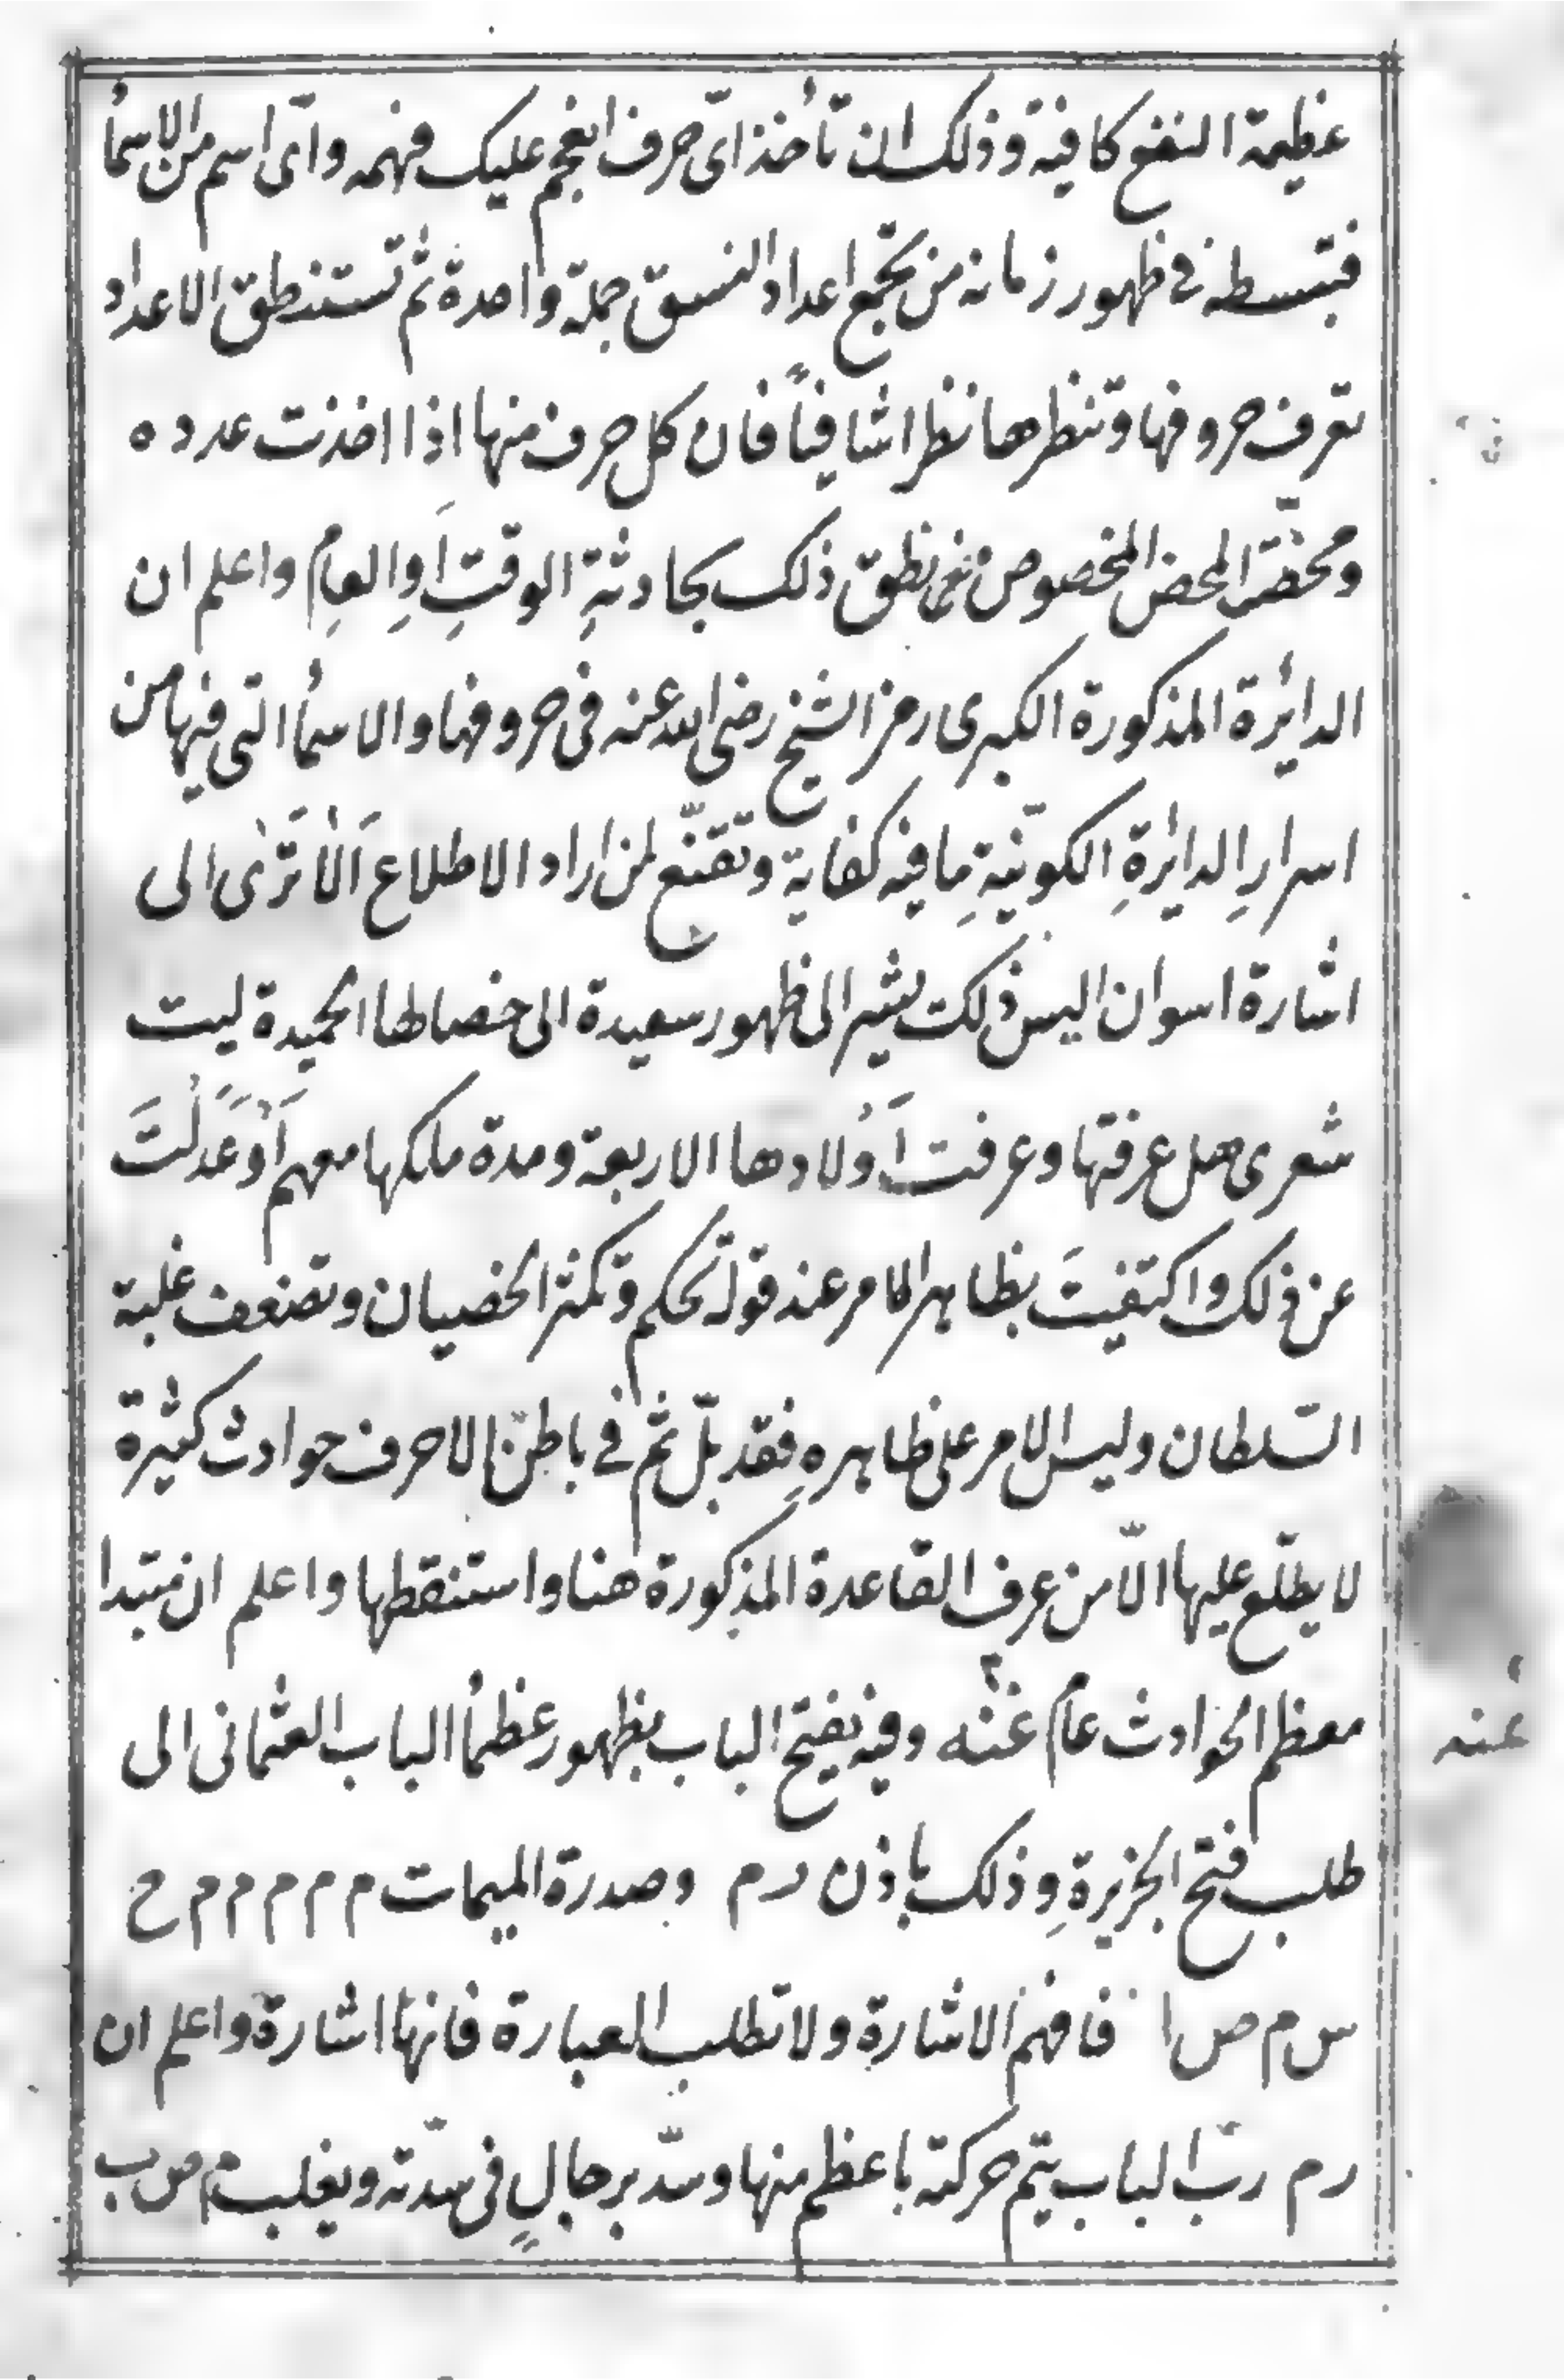 عظيمة النفع كافية وذلك ان تأخذ اىّ حرف انعجم عليك فهمه واىّ اسم من الاسمأ
فتبسطه فى ظهور زمانه من تجمع اعداد النسق جملة واحدة ثم تستنطق الاعداد
تعرف حروفها وتنظرها نظرا شافياً فان كل حرف منها اذا اخذت عدده
ومخضته المخض المخصوص نطق ذلك بحادثةِ الوقتِ اوِ العامِ واعلم ان
الدائرة المذكورة الكبرى رمز الشيخ رضى الله عنه فى حروفها والاسمأ التى فيها من
اسرارِ الدائرةِ الكونيّةِ ما فيه كفاية وتقنّع لمن اراد الاطلاع اَلاَ تَرَى الى
اشارة اسوان اليس ذلك يشير الى ظهور سعيدة الى خصالها الحميدة ليت
شعرى هل عرفتها وعرفت اَوْلادها الاربعة ومدة ملكها معهم اَوْ عَدَلْتَ
عن ذلك واكتفيتَ بظاهر الامر عند قوله تحكم وتكثر الخصيان وتضعف غلبة
السّلطان وليس الامر على ظاهرهِ فقد بلّ ثم فى باطن الاحرف حوادث كثيرة
لا يطّلع عليها الاّ من عرف القاعدة المذكورة هنا واستنقطها واعلم ان مبتدا
معظم الحوادث عام غنه وفيه يفتح الباب بظهور عظمأ الباب العثمانى الى
عنه
طلب فتح الجزيرةِ وذلك باذن رم وصدرة الميمات م م م م م م ح
س م ص ا فافهم الاشارة ولا تطلب العبارة فانها اشارة واعلم ان
رم ربّ الباب يتم حركته باعظم منها وسدّ برجالٍ فى سدّته ويغلب م ص ب